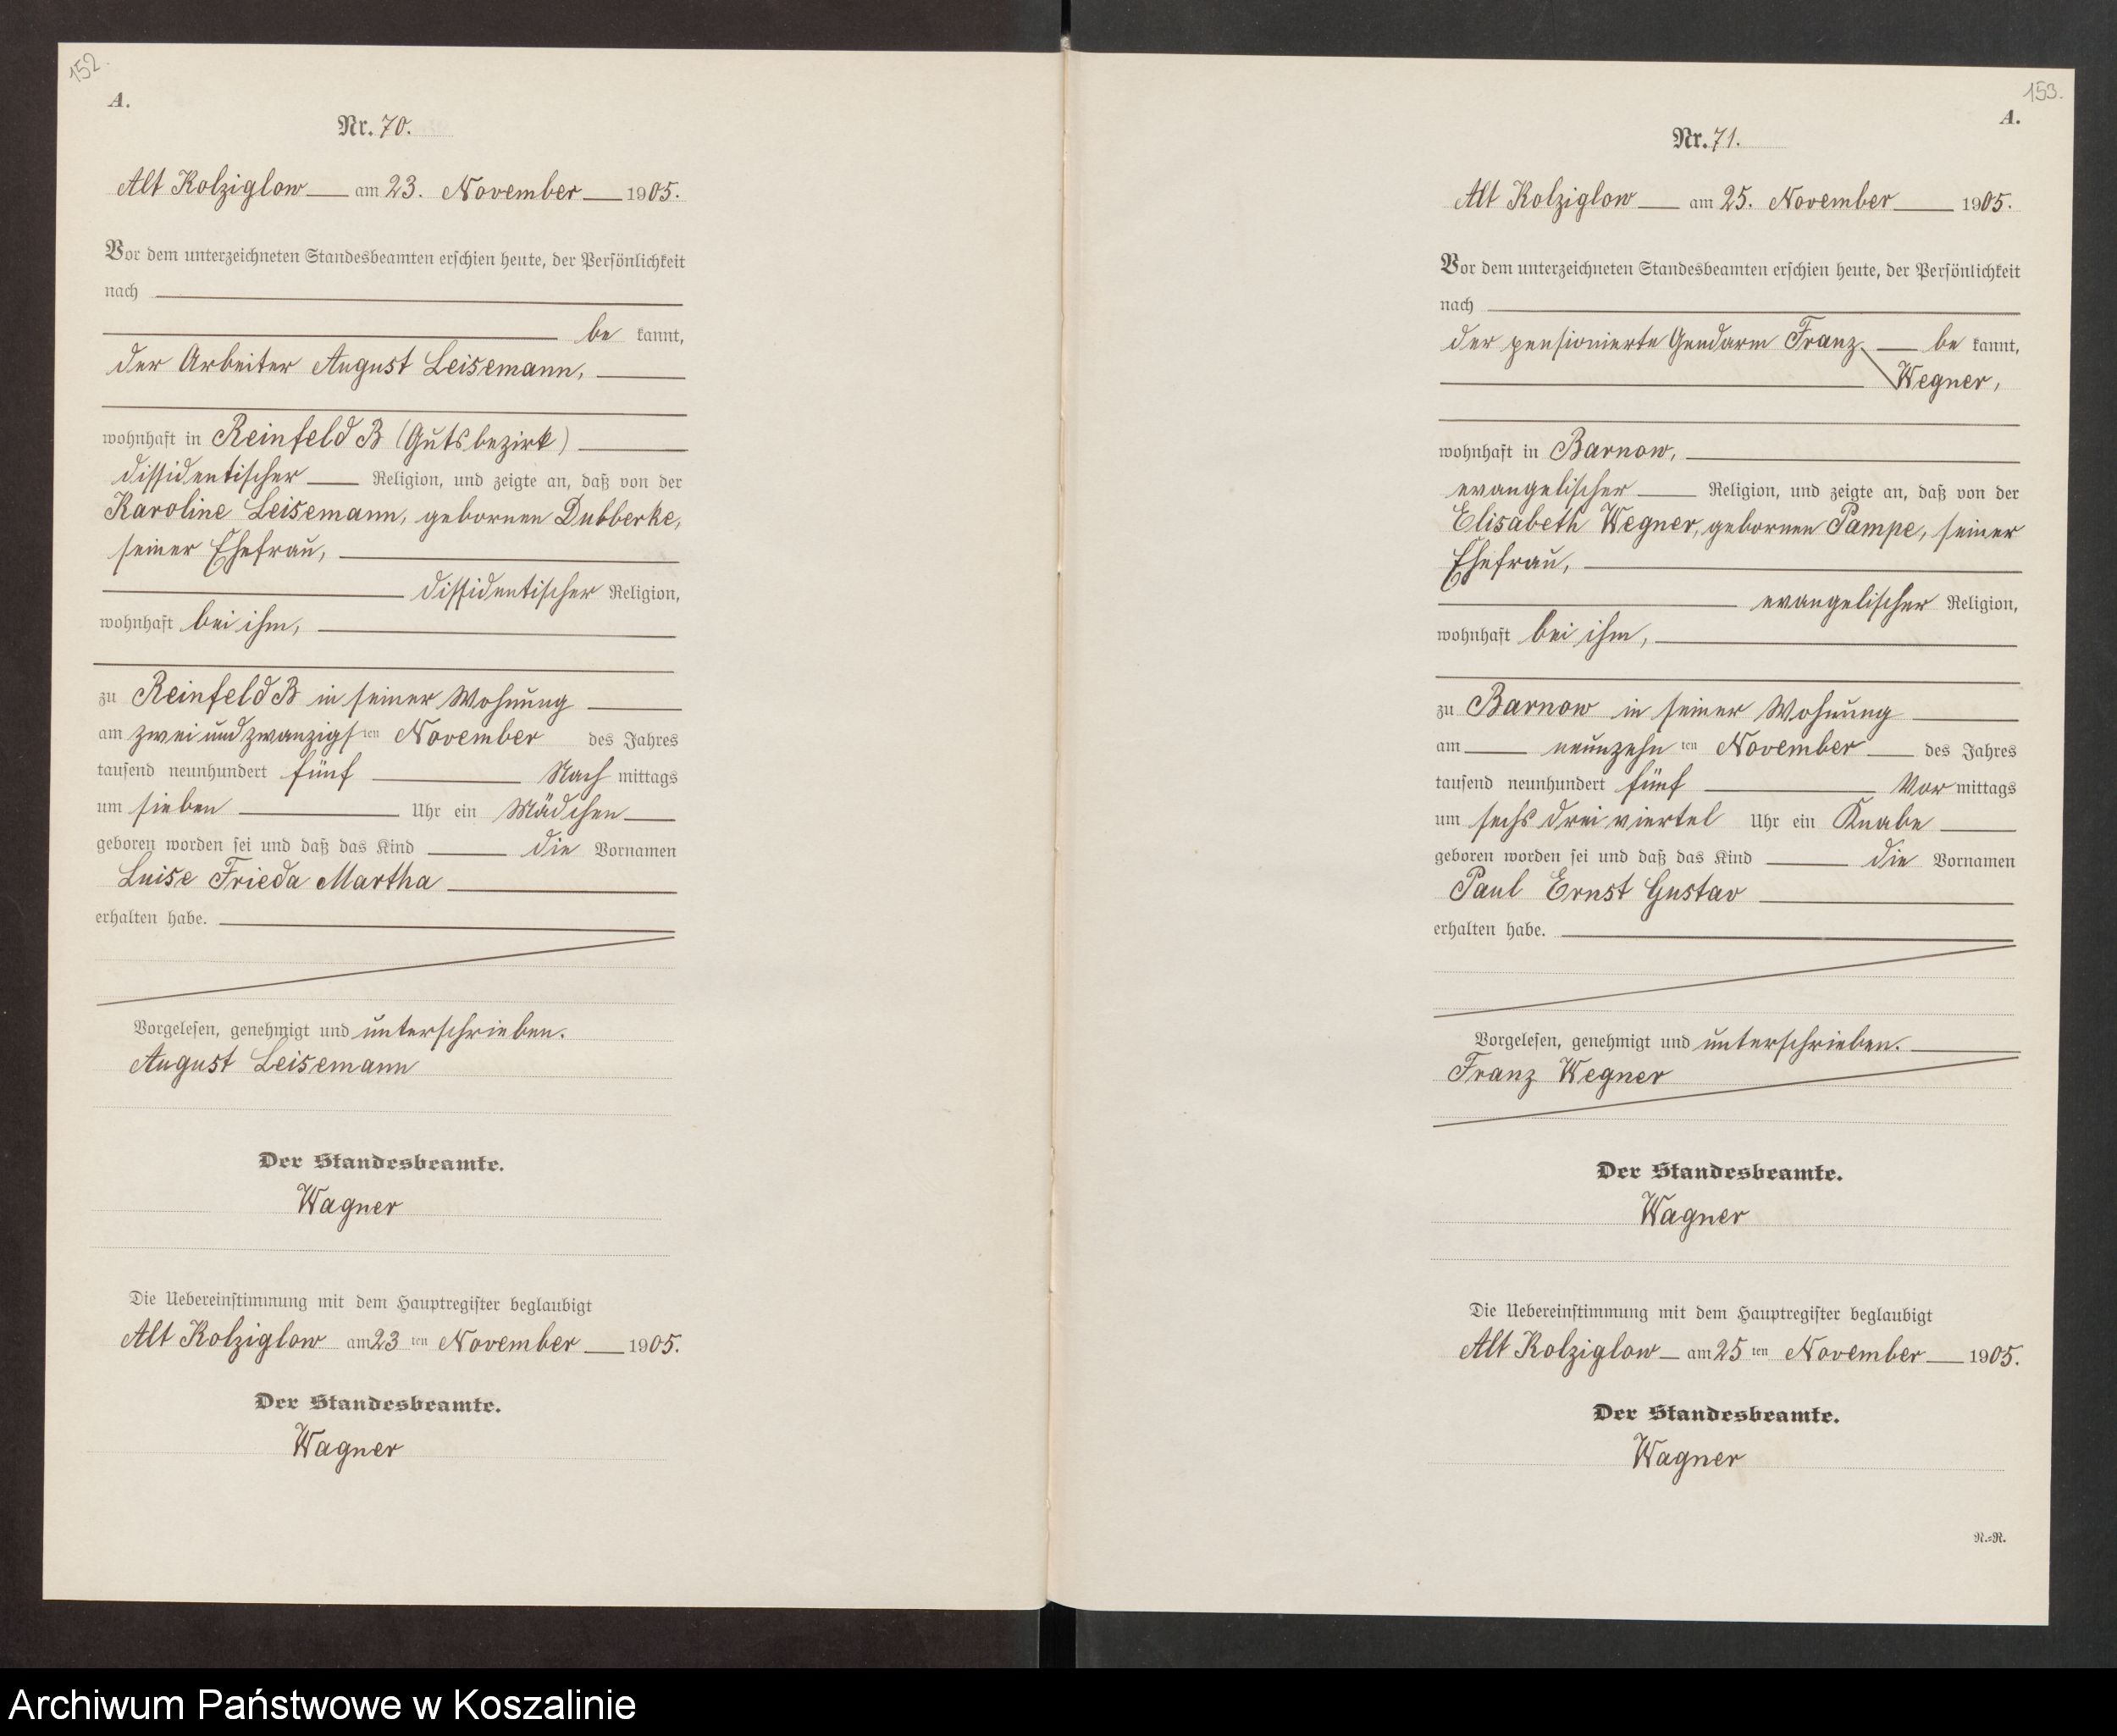 152.
A.
Nr. 70.
Alt Kolziglow am 23. November 1905.
Vor dem unterzeichneten Standesbeamten erschien heute, der Persönlichkeit
nach
be kannt,
der Arbeiter August Leisemann,
wohnhaft in Reinfeld B (Gutsbezirk)
dissidentischer Religion, und zeigte an, daß von der
Karoline Leisemann, geborenen Dubberke,
seiner Ehefrau,
dissidentischer Religion,
wohnhaft bei ihm,
zu Reinfeld B in seiner Wohnung
am zwei und zwanzigsten November des Jahres
tausend neunhundert fünf Nach mittags
um sieben Uhr ein Mädchen
geboren worden sei und daß das Kind die Vornamen
Luise Frieda Martha
erhalten habe.
Vorgelesen, genehmigt und unterschrieben.
August Leisemann
Der Standesbeamte.
Wagner
Die Uebereinstimmung mit dem Hauptregister beglaubigt
Alt Kolziglow am 23 ten November 1905.
Der Standesbeamte.
Wagner
153.
A.
Nr. 71.
Alt Kolziglow am 25. November 1905.
Vor dem unterzeichneten Standesbeamten erschien heute, der Persönlichkeit
nach
der pensionierte Gendarm Franz be kannt,
Wegner,
wohnhaft in Barnow,
evangelischer Religion, und zeigte an, daß von der
Elisabeth Wegner, geborenen Pampe, seiner
Ehefrau,
evangelischer Religion,
wohnhaft bei ihm,
zu Barnow in seiner Wohnung
am neunzehn ten November des Jahres
tausend neunhundert fünf Vor mittags
um sechs drei viertel Uhr ein Knabe
geboren worden sei und daß das Kind die Vornamen
Paul Ernst Gustav
erhalten habe.
Vorgelesen, genehmigt und unterschrieben.
Franz Wegner
Der Standesbeamte.
Wagner
Die Uebereinstimmung mit dem Hauptregister beglaubigt
Alt Kolziglow am 25 ten November 1905.
Der Standesbeamte.
Wagner
N.=R.
Archiwum Państwowe w Koszalinie